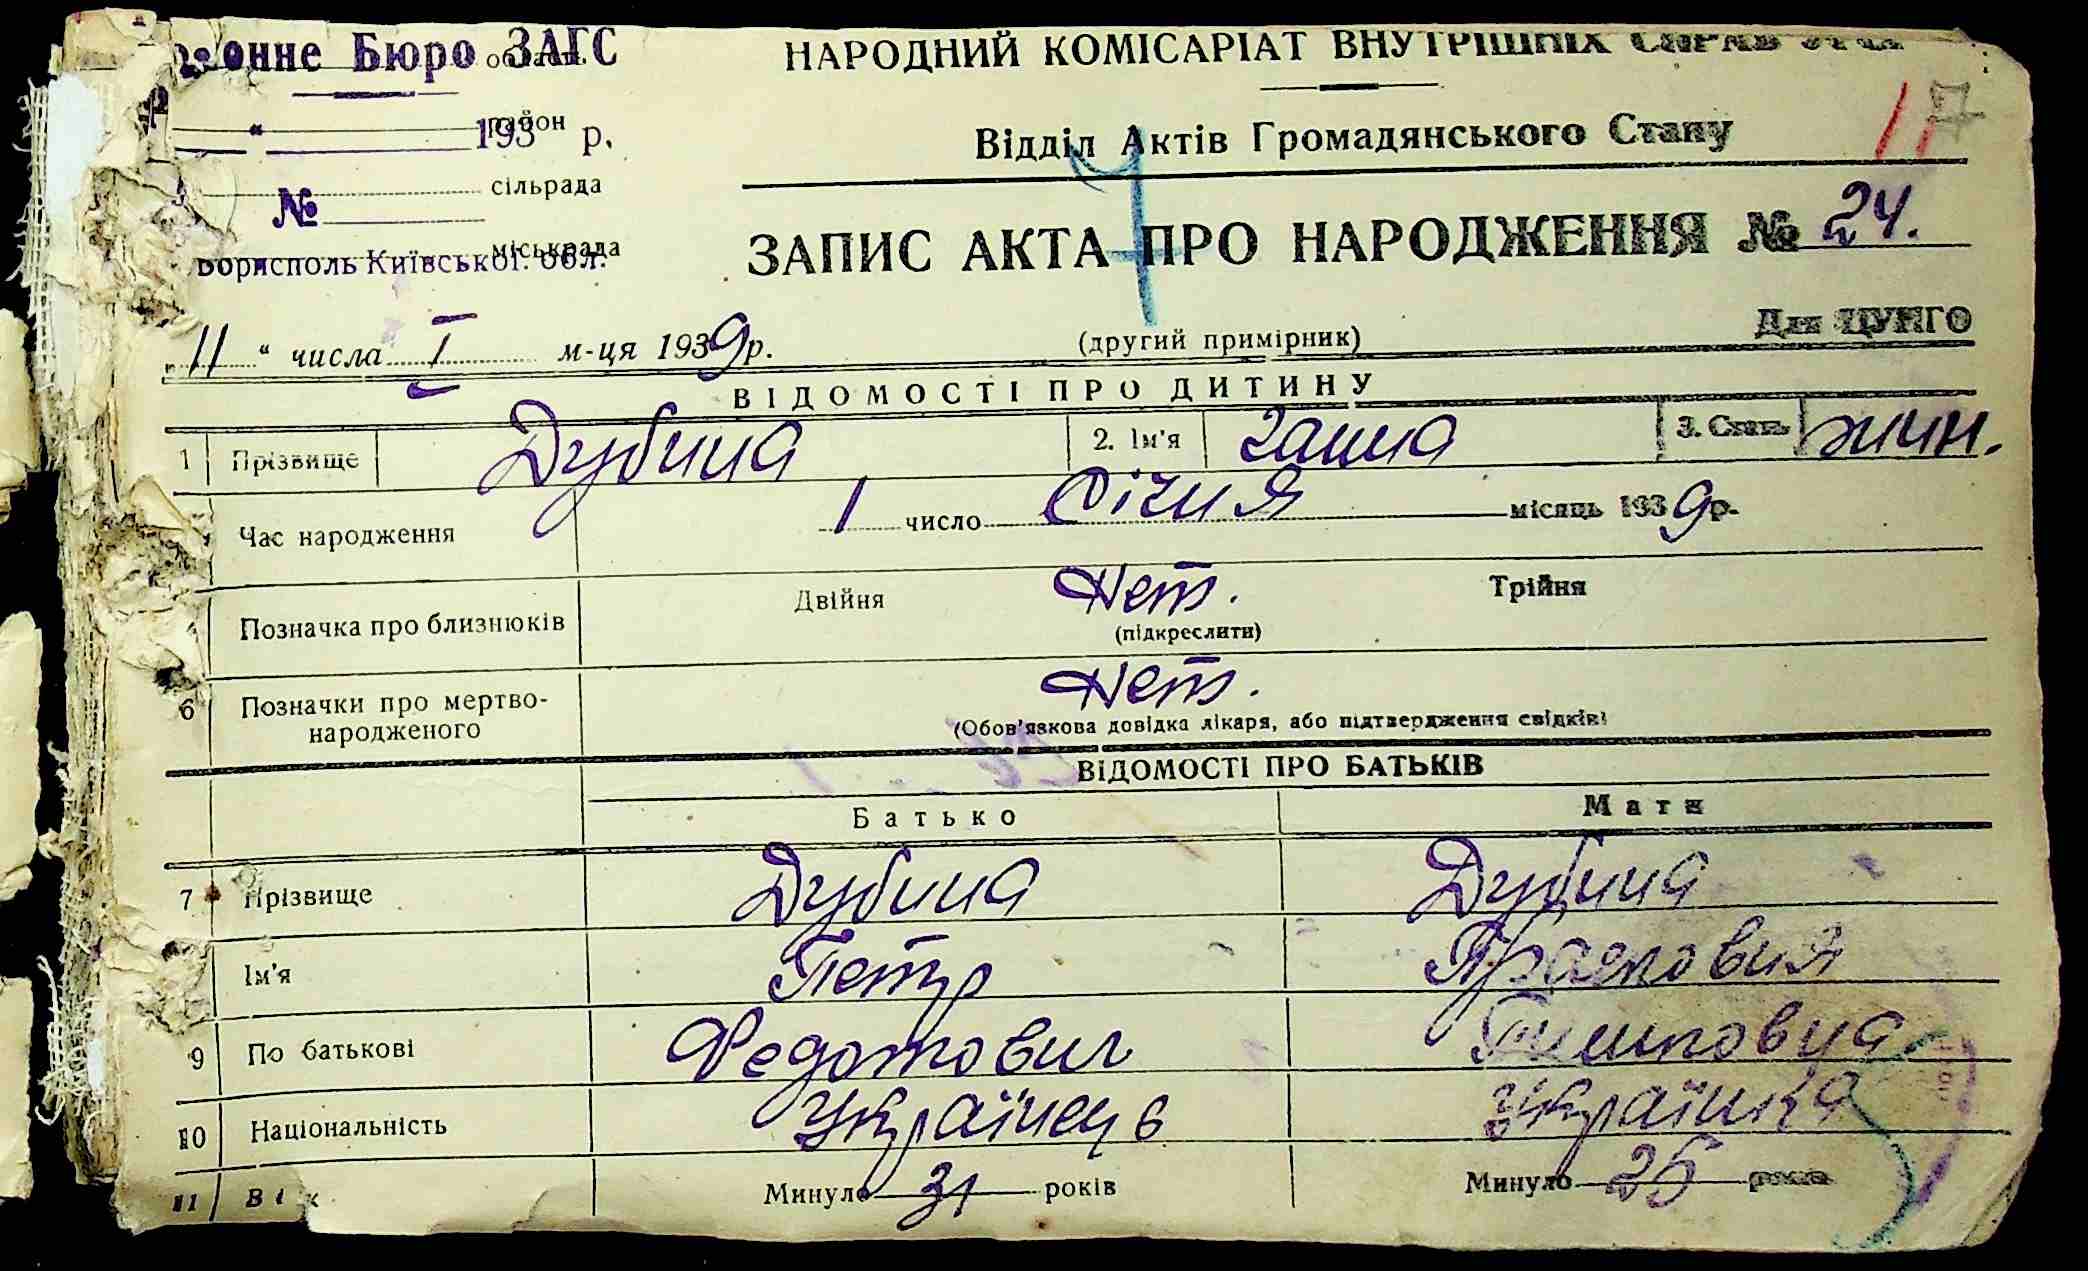 Бюро ЗАГС
район
193 р.
№ сільрада
міськрада
Бориспіль Київської обл.
НАРОДНИЙ КОМІСАРІАТ ВНУТРІШНІХ СПРАВ УРСР
Відділ Актів Громадянського Стану
ЗАПИС АКТА ПРО НАРОДЖЕННЯ № 24.
"11" числа I м-ця 1939 р.
(другий примірник)
Для ЦУНГО
ВІДОМОСТІ ПРО ДИТИНУ
1 Прізвище Дубина 2. Ім'я Галина 3. Стать жін.
Час народження 1 число Січня місяць 1939 р.
Позначка про близнюків Двійня Нет. Трійня
(підкреслити)
6 Позначки про мертво- Нет.
народженого (Обов'язкова довідка лікаря, або підтвердження свідків)
ВІДОМОСТІ ПРО БАТЬКІВ
Батько Мати
7 Прізвище Дубина Дубина
Ім'я Петр
9 По батькові Федотович
10 Національність Українець Українка
11 Вік Минуло 31 років Минуло 25 років